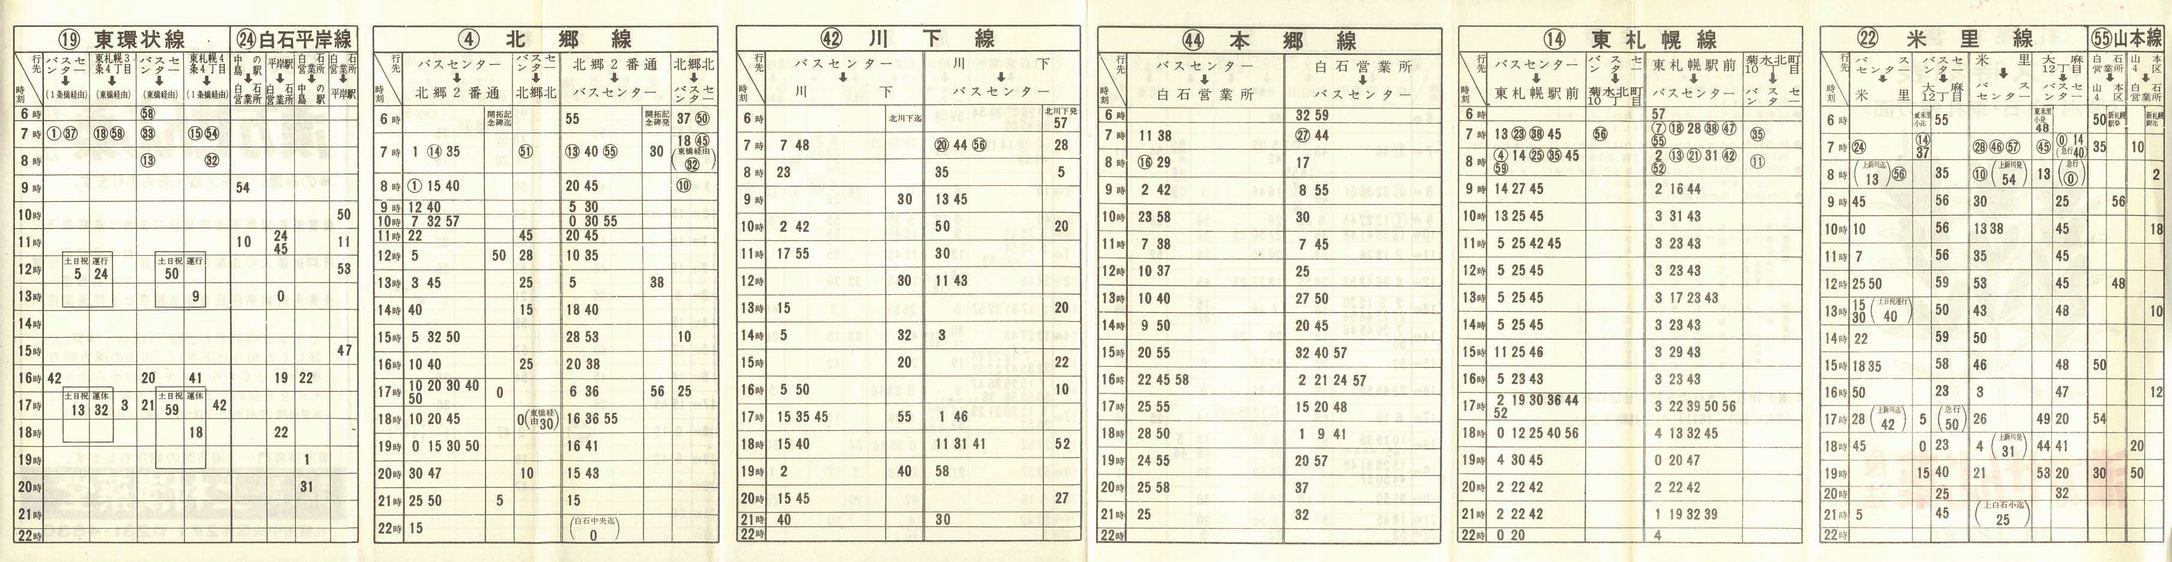 ⑲ 東環状線
㉔白石平岸線
行先 時刻
バスセンター ➡ 東札幌3条4丁目 (1条橋経由)
東札幌3条4丁目 (東橋経由)
バスセンター (東橋経由)
東札幌4条4丁目 (1条橋経由)
6時 ㊽
7時 ① ㊲ ⑱ 58 ㉝ ⑮ 54
8時 ⑬ ㉜
9時 54
10時 50
11時 10 24 45 11
12時 土日祝運行 5 24 土日祝運行 50 53
13時 9 0
14時
15時 47
16時 42 20 41 19 22
17時 土日祝運休 13 32 3 21 土日祝運休 59 42
18時 18 22
19時 1
20時 31
21時
22時
④ 北郷線
行先 時刻
バスセンター ➡ 北郷2番通
バスセンター ➡ 北郷北
北郷2番通 ➡ バスセンター
北郷北 ➡ バスセンター
6時 開拓記念碑迄 55 開拓記念碑発 37 ㊿
7時 1 ⑭ 35 51 ⑬ 40 55 30 18 ㊺ (東橋経由 ㉜)
8時 ① 15 40 20 45 ⑩
9時 12 40 5 30
10時 7 32 57 0 30 55
11時 22 45 20 45
12時 5 50 28 10 35
13時 3 45 25 5 38
14時 40 15 18 40
15時 5 32 50 28 53 10
16時 10 40 25 20 38
17時 10 20 30 40 50 0 6 36 56 25
18時 10 20 45 0(東橋経由30) 16 36 55
19時 0 15 30 50 16 41
20時 30 47 10 15 43
21時 25 50 5 15
22時 15 (白石中央迄 0)
㊷ 川下線
行先 時刻
バスセンター ➡ 川下
川下 ➡ バスセンター
6時 北川下迄 北川下発 57
7時 7 48 ⑳ 44 56 28
8時 23 35 5
9時 30 13 45
10時 2 42 50 20
11時 17 55 30
12時 30 11 43
13時 15 20
14時 5 32 3
15時 20 22
16時 5 50 10
17時 15 35 45 55 1 46
18時 15 40 11 31 41 52
19時 2 40 58
20時 15 45 27
21時 40 30
22時
㊹ 本郷線
行先 時刻
バスセンター ➡ 白石営業所
白石営業所 ➡ バスセンター
6時 32 59
7時 11 38 ㉗ 44
8時 ⑯ 29 17
9時 2 42 8 55
10時 23 58 30
11時 7 38 7 45
12時 10 37 25
13時 10 40 27 50
14時 9 50 20 45
15時 20 55 32 40 57
16時 22 45 58 2 21 24 57
17時 25 55 15 20 48
18時 28 50 1 9 41
19時 24 55 20 57
20時 25 58 37
21時 25 32
22時
⑭ 東札幌線
行先 時刻
バスセンター ➡ 東札幌駅前
バスセンター ➡ 菊水北町10丁目
東札幌駅前 ➡ バスセンター
菊水北町10丁目 ➡ バスセンター
6時 57
7時 13 ㉓ ㊳ 45 56 ⑦ ⑱ 28 ㊳ ㊼ 55 ㉟
8時 ④ 14 ㉕ ㉟ 45 59 2 ⑬ ㉑ 31 ㊷ 52 ⑪
9時 14 27 45 2 16 44
10時 13 25 45 3 31 43
11時 5 25 42 45 3 23 43
12時 5 25 45 3 23 43
13時 5 25 45 3 17 23 43
14時 5 25 45 3 23 43
15時 11 25 46 3 29 43
16時 5 23 43 3 23 43
17時 2 19 30 36 44 52 3 22 39 50 56
18時 0 12 25 40 56 4 13 32 45
19時 4 30 45 0 20 47
20時 2 22 42 2 22 42
21時 2 22 42 1 19 32 39
22時 0 20 4
㉒ 米里線
55山本線
行先 時刻
バスセンター ➡ 米里
バスセンター ➡ 大麻12丁目
米里 ➡ バスセンター
大麻12丁目 ➡ バスセンター
白石営業所 ➡ 山本4区
山本4区 ➡ 白石営業所
6時 東米里小迄 55 東米里小発 48 50
7時 ㉔ ⑭ 37 ㉘ ㊻ 57 ㊺ ⓪ 14 (急行40) 35 10
8時 (上新川迄 13) 56 35 ⑩ (上新川発 54) 13 (急行 ⓪) 2
9時 45 56 30 25 56
10時 10 56 13 38 45 18
11時 7 56 35 45
12時 25 50 59 53 45 48
13時 15 30 (土日祝運行 40) 50 43 48 10
14時 22 59 50
15時 18 35 58 46 48 50
16時 50 23 3 47 12
17時 28 (上新川迄 42) 5 (急行 50) 26 49 20 54
18時 45 0 23 4 (上新川発 31) 44 41 20
19時 15 40 21 53 20 30 50
20時 25 32
21時 5 45 (上白石小迄 25)
22時